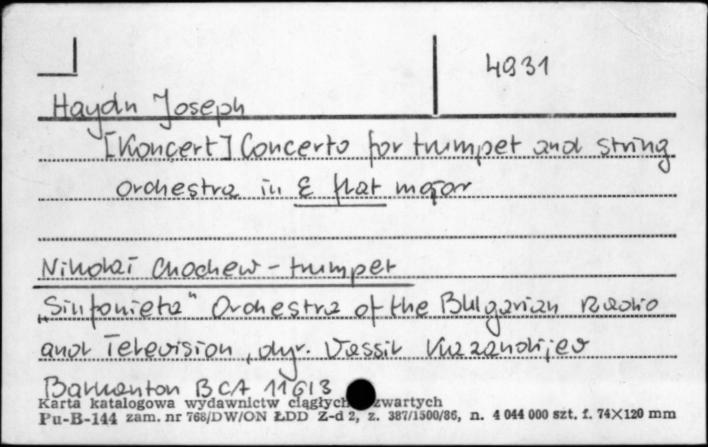 4931
Haydn Joseph
[Koncert] Concerto for trumpet and string
orchestra in E flat major
Nikolai Chochew - trumpet
„Sinfonieta" Orchestra of the Bulgarian Radio
and Television, dyr. Vassil Kazandijev
Balkanton BCA 11613
Karta katalogowa wydawnictw ciągłych zwartych
Pu-B-144 zam. nr 768/DW/ON ŁDD Z-d 2, z. 387/1500/86, n. 4 044 000 szt. f. 74×120 mm